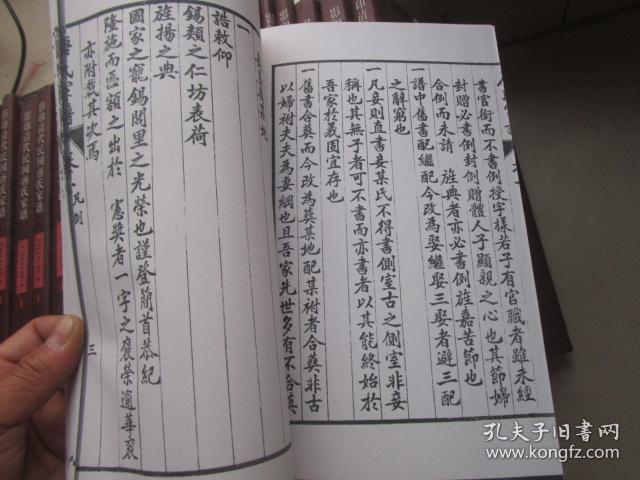 書官銜而不書例授字樣若子有官職者雖未經
封贈必書例封例贈體人子顯親之心也其節婦
合例而未請旌典者亦必書例旌嘉苦節也
一譜中舊書配繼配今改為娶繼娶三娶者避三配
之辭窮也
一凡妾則直書妾某氏不得書側室古之側室非妾
稱也其無子者可不書而亦書者以其能終始於
吾家於義固宜存也
一舊書合葬而今改為葬某地配某祔者合葬非古
以婦祔夫夫為妻綱也且吾家先世多有不合葬
一
誥敕仰
錫類之仁坊表荷
旌揚之典
國家之寵錫閭里之光榮也謹登簡首恭紀
隆施而匾額之出於憲獎者一字之褒榮逾華衮
亦附載其次焉
凡例
三
孔夫子旧书网
www.kongfz.com